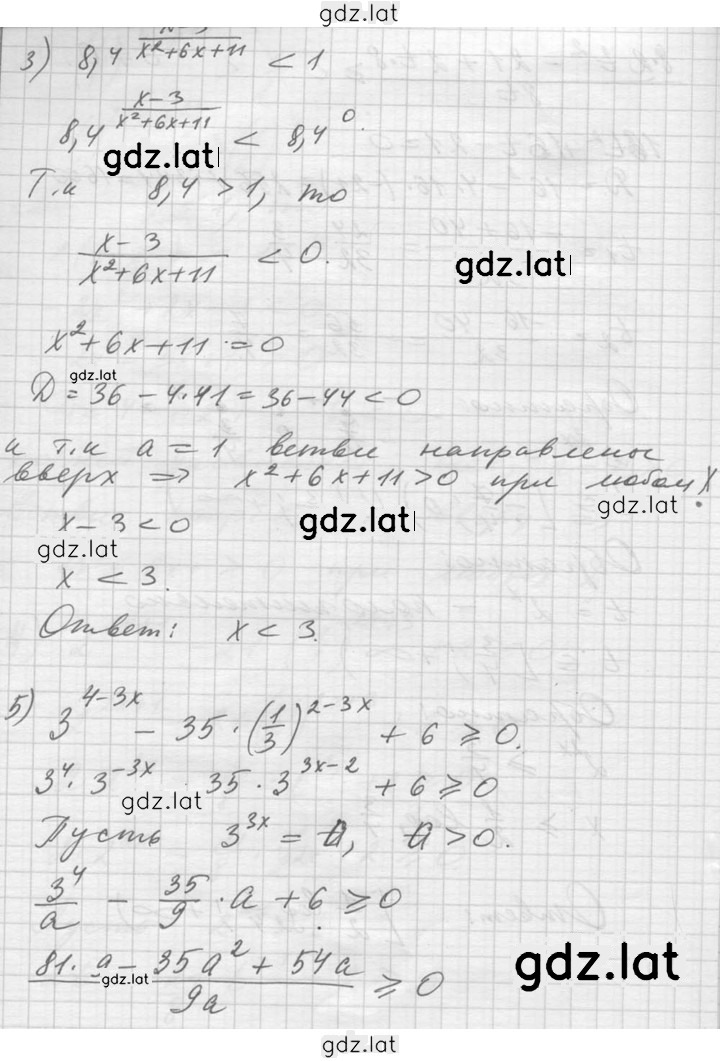 gdz.lat
3) 8,4^((x-3)/(x²+6x+11)) < 1
8,4^((x-3)/(x²+6x+11)) < 8,4^0.
gdz.lat
Т.к 8,4 > 1, то
(x-3)/(x²+6x+11) < 0.
gdz.lat
x²+6x+11 = 0
gdz.lat
D = 36 - 4·11 = 36-44 < 0
и т.к a = 1 ветви направлены
вверх => x²+6x+11 > 0 при любом x.
gdz.lat
x-3 < 0
gdz.lat
gdz.lat
x < 3.
Ответ: x < 3.
5) 3^(4-3x) - 35·(1/3)^(2-3x) + 6 ⩾ 0.
3^4·3^(-3x) 35·3^(3x-2) + 6 ⩾ 0
gdz.lat
Пусть 3^(3x) = a, a > 0.
3^4/a - 35/9·a + 6 ⩾ 0
(81·a - 35a² + 54a)/(9a) ⩾ 0
gdz.lat
gdz.lat
gdz.lat